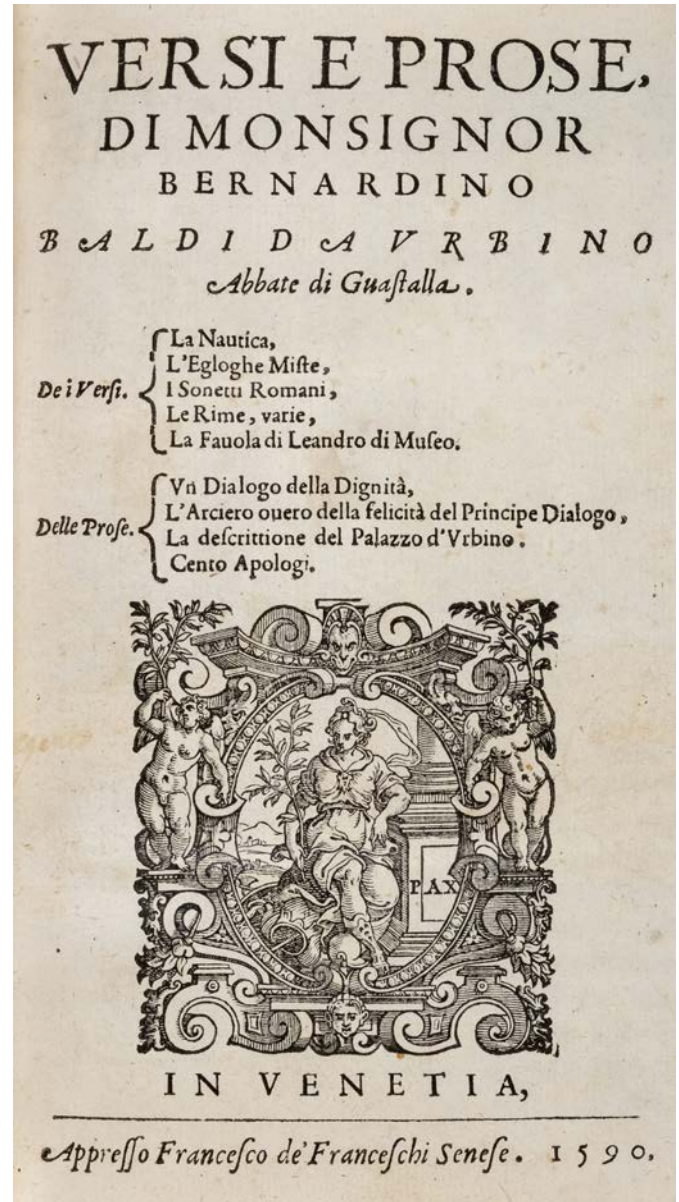 VERSI E PROSE,
DI MONSIGNOR
BERNARDINO
BALDI DA VRBINO
Abbate di Guaſtalla.
De i Verſi.
La Nautica,
L'Egloghe Miſte,
I Sonetti Romani,
Le Rime, varie,
La Fauola di Leandro di Muſeo.
Delle Proſe.
Vn Dialogo della Dignità,
L'Arciero ouero della felicità del Principe Dialogo,
La deſcrittione del Palazzo d'Vrbino.
Cento Apologi.
PAX
IN VENETIA,
Appreſſo Franceſco de' Franceſchi Seneſe. 1590.